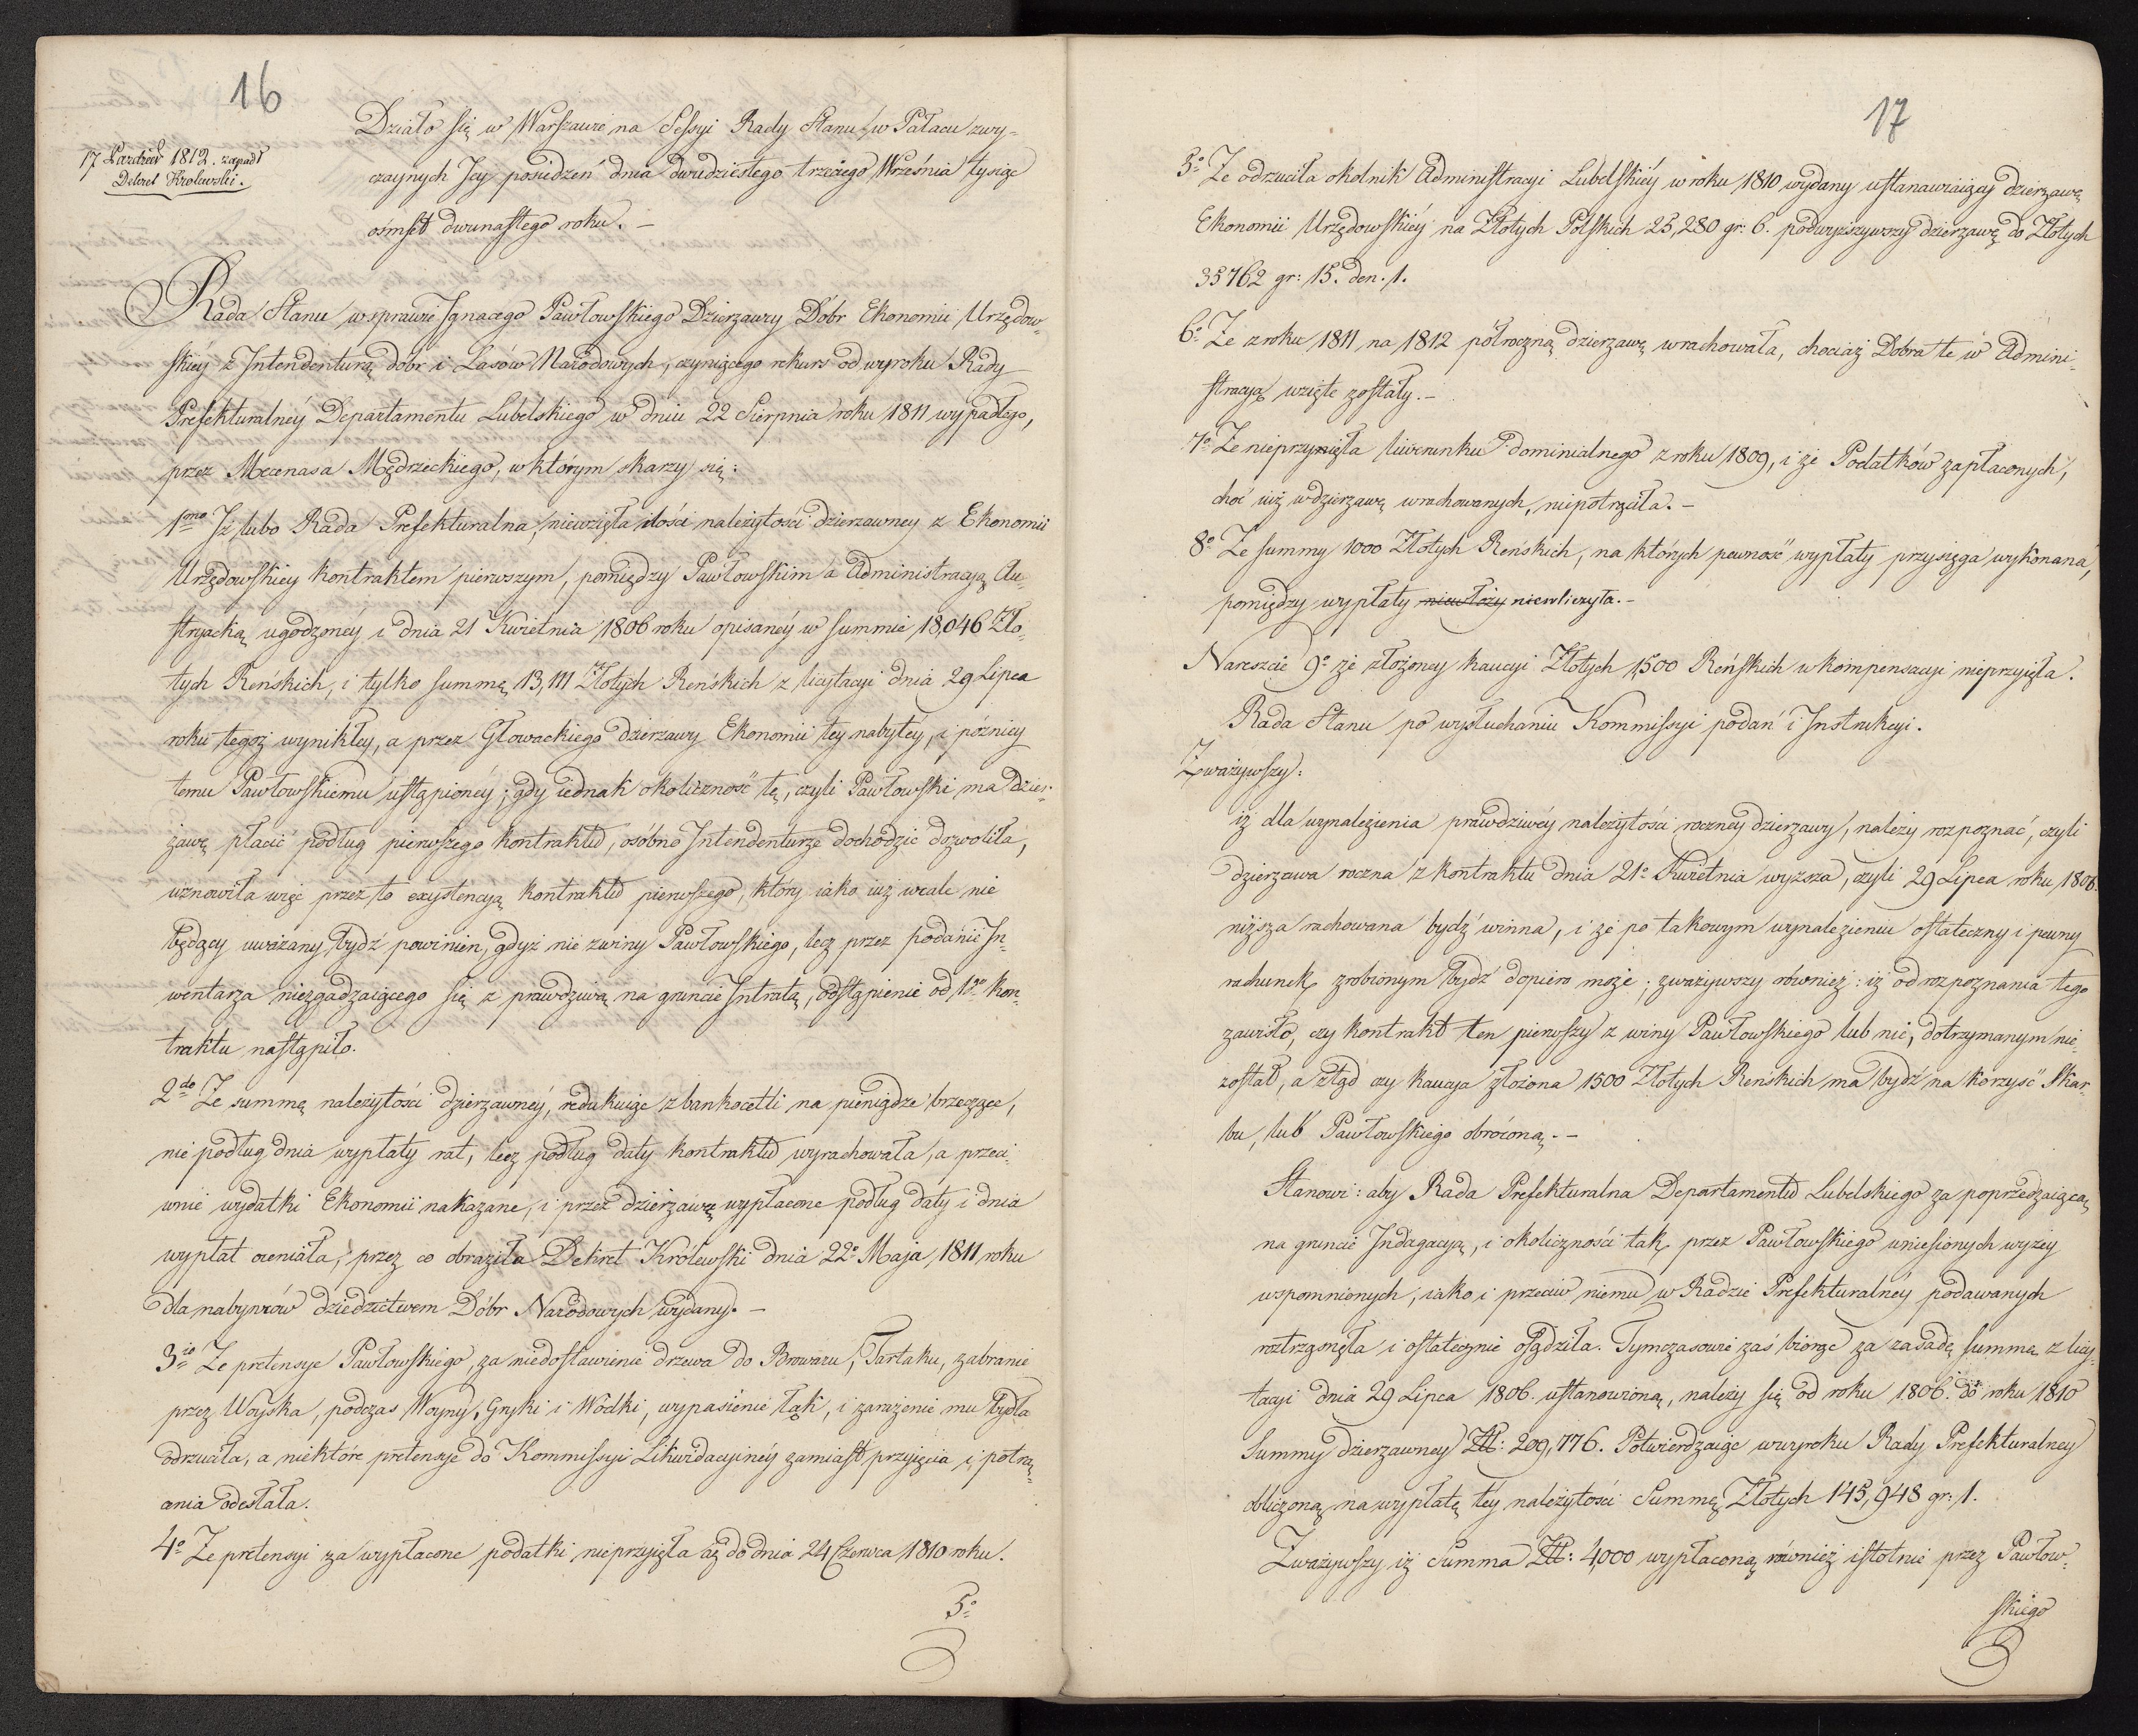 16
17 Pazdzier 1812. zapadł
Dekret Krolewski.
Działo się w Warszawie na Sessyi Rady Stanu w Pałacu zwy-
czaynych Jey posiedzeń dnia dwudziestego trzeciego Września tysiąc
ośmset dwunastego roku. —
Rada Stanu w sprawie Ignacego Pawłowskiego Dzierzawcy Dóbr Ekonomii Urzędow-
skiéy z Intendenturą dóbr i Lasów Narodowych, czyniącego rekurs od wyroku Rady
Prefekturalnéy Departamentu Lubelskiego w dniu 22 Sierpnia roku 1811 wypadłego,
przez Mecenasa Mędrzeckiego, w którym skarzy się:
1mo Iż lubo Rada Prefekturalna, niewzięła ilości należytości dzierzawney z Ekonomii
Urzędowskiey kontraktem pierwszym, pomiędzy Pawłowskim a Administracyą Au-
stryacką ugodzonéy i dnia 21 Kwietnia 1806 roku opisanéy w summie 18,046 Zło-
tych Reńskich, i tylko summę 13,111 Złotych Reńskich z licytacyi dnia 29 Lipca
roku tegoż wynikłey, a przez Głowackiego dzierzawy Ekonomii tey nabytéy, i późniey
temu Pawłowskiemu ustąpionéy; gdy iednak okoliczność tę, czyli Pawłowski ma dzier-
żawę płacić podług pierwszego kontraktu, osóbno Intendenturze dochodzić dozwoliła,
wznowiła więc przez to exystencyą kontraktu pierwszego, który iako iuż wcale nie
będący uważany bydź powinien, gdyż nie z winy Pawłowskiego, lecz przez podanie In-
wentarza niezgadzaiącego się z prawdziwą na gruncie Intratą, odstąpienie od 1go Kon-
traktu nastąpiło.
2do Ze summę należytości dzierzawnéy, redukuiąc z bankocetli na pieniądze brzeczące,
nie podług dnia wypłaty rat, lecz podług daty kontraktu wyrachowała, a przeci-
wnie wydatki Ekonomii nakazane, i przez dzierżawcę wypłacone podług daty i dnia
wypłat oceniała, przez co obraziła Dekret Królewski dnia 22o Maja 1811 roku
dla nabywców dziedzictwem Dóbr Narodowych wydany. —
3io Ze pretensye Pawłowskiego, za niedostawienie drzewa do Browaru, Tartaku, zabranie
przez Woyska, podczas Woyny, Gryki i Wódki, wypasienie łąk, i zarażenie mu bydła
odrzuciła, a niektóre pretensye do Kommissyi Likwidacyinéy zamiast przyięcia i potrą-
cenia odesłała.
4o Ze pretensyi za wypłacone podatki nieprzyięła aż do dnia 24 Czerwca 1810 roku.
5o
17
5o Ze odrzuciła okolnik Administracyi Lubelskiéy w roku 1810 wydany ustanawiaiący dzierzawę
Ekonomii Urzędowskiéy na Złotych Polskich 25,280 gr: 6. podwyższywszy dzierzawę do Złotych
35762 gr: 15. den. 1.
6o Ze z roku 1811 na 1812 półroczną dzierzawę wrachowała, chociaż Dobra te w Admini-
stracyą wzięte zostały. —
7o Ze nieprzyięła liwerunku dominialnego z roku 1809, i że Podatków zapłaconych,
choć iuż w dzierzawę wrachowanych, niepotrąciła. —
8o Ze summy 1000 Złotych Reńskich, na których pewność wypłaty przysięga wykonana,
pomiędzy wypłaty niewłoży niewliczyła. —
Nareszcie 9o że złożoney kaucyi Złotych 1,500 Reńskich w kompensacyi nieprzyięła.
Rada Stanu po wysłuchaniu Kommissyi podań i Instrukcyi.
Zważywszy:
iż dla wynalezienia prawdziwéy należytości roczney dzierzawy, należy rozpoznać, czyli
dzierzawa roczna z kontraktu dnia 21o Kwietnia wyższa, czyli 29 Lipca roku 1806.
niższa rachowana bydź winna, i że po takowym wynalezieniu ostateczny i pewny
rachunek zrobionym bydź dopiero może; zważywszy również: iż od rozpoznania tego
zawisło, czy kontrakt ten pierwszy z winy Pawłowskiego lub nie, dotrzymanym nie-
został, a ztąd czy kaucya złożona 1500 Złotych Reńskich ma bydź na korzyść Skar-
bu, lub Pawłowskiego obróconą. —
Stanowi: aby Rada Prefekturalna Departamentu Lubelskiego za poprzedzaiącą
na gruncie Indagacyą, i okoliczności tak przez Pawłowskiego wniesionych wyżey
wspomnionych, iako i przeciw niemu w Radzie Prefekturalnéy podawanych
roztrząsnęła i ostatecznie osądziła. Tymczasowie zaś biorąc za zasadę summę z licy-
tacyi dnia 29 Lipca 1806. ustanowioną, należy się od roku 1806. do roku 1810
Summy dzierzawney Zł: 209,776. Potwierdzaiąc w wyroku Rady Prefekturalney
obliczoną na wypłatę tey należytości Summę Złotych 145,948 gr: 1.
Zważywszy iż Summa Zł: 4,000 wypłaconą również istotnie przez Pawłow-
skiego